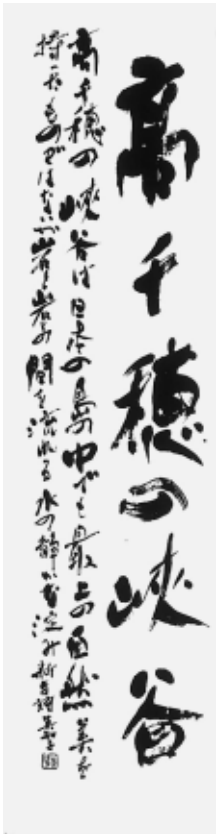 高千穂の峡谷
高千穂の峡谷は日本の島の中でも最上の自然美を
持つものではないが岩と岩の間を流れる水の静かな淀み